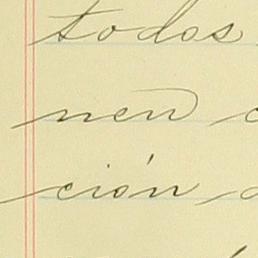 todos
nen
ción